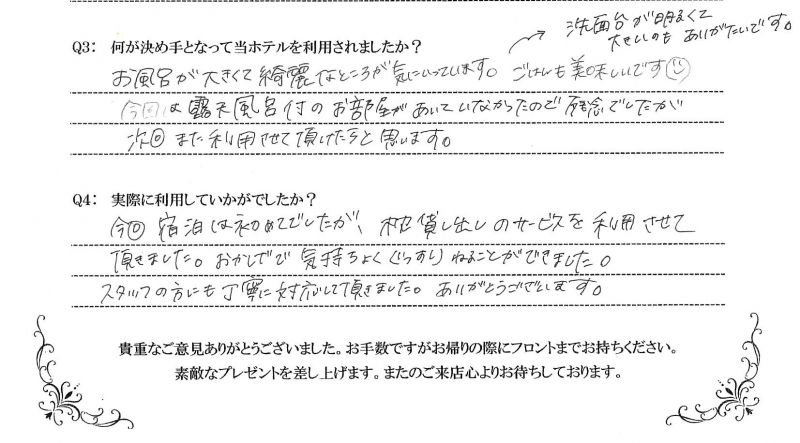 Q3: 何が決め手となって当ホテルを利用されましたか？
洗面台が明るくて
大きいのも ありがたいです。
お風呂が大きくて綺麗なところが気にいっています。 ごはんも美味しいです
今回は露天風呂付のお部屋があいていなかったので残念でしたが
次回また利用させて頂けたらと思います。
Q4: 実際に利用していかがでしたか？
今回 宿泊は初めてでしたが、枕貸し出しのサービスを利用させて
頂きました。おかげで気持ちよくぐっすりねることができました。
スタッフの方にも丁寧に対応して頂きました。ありがとうございます。
貴重なご意見ありがとうございました。お手数ですがお帰りの際にフロントまでお持ちください。
素敵なプレゼントを差し上げます。またのご来店心よりお待ちしております。